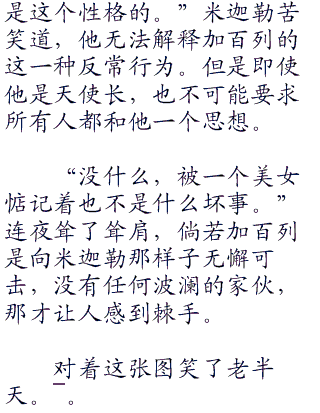 是这个性格的。”米迦勒苦
笑道，他无法解释加百列的
这一种反常行为。但是即使
他是天使长，也不可能要求
所有人都和他一个思想。
“没什么，被一个美女
惦记着也不是什么坏事。”
连夜耸了耸肩，倘若加百列
是向米迦勒那样子无懈可
击，没有任何波澜的家伙，
那才让人感到棘手。
对着这张图笑了老半
天。¯。